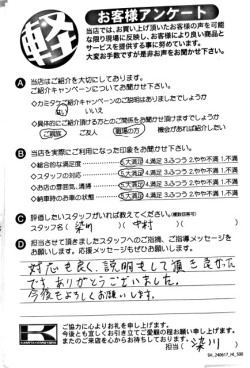 軽
お客様アンケート
当店では、お買い上げ頂いたお客様の声を可能
な限り現場に反映し、お客様により良い商品と
サービスを提供する事に努めています。
大変お手数ですが是非お声をお聞かせ下さい。
A 当店はご紹介を大切にしております。
ご紹介キャンペーンについてお聞かせ下さい。
◇カミタケご紹介キャンペーンのご説明はありましたでしょうか
はい いいえ
◇具体的にご紹介頂ける方とのご関係をお聞かせ頂けますでしょうか
ご親族 ご友人 職場の方 機会があれば紹介したい
B 当店を実際にご利用になった印象をお聞かせ下さい。
◇総合的な満足度 5.大満足 4.満足 3.ふつう 2.やや不満 1.不満
◇スタッフの対応 5.大満足 4.満足 3.ふつう 2.やや不満 1.不満
◇お店の雰囲気、清掃 5.大満足 4.満足 3.ふつう 2.やや不満 1.不満
◇納車時のお車の状態 5.大満足 4.満足 3.ふつう 2.やや不満 1.不満
C 評価したいスタッフがいれば教えてください。(複数回答可)
スタッフ名( 染川 )( 中村 )( )
D 担当させて頂きましたスタッフへのご指摘、ご指導メッセージを
お願いします。応援メッセージもぜひお願いします。
対応も良く、説明もして頂き良かった
です。ありがとうございました。
今後もよろしくお願いします。
ご協力に心よりお礼を申し上げます。
今後とも宜しくお引き立てご愛顧の程お願い申し上げます。
またのご来店を心からお待ちしております。
担当( 染川 )